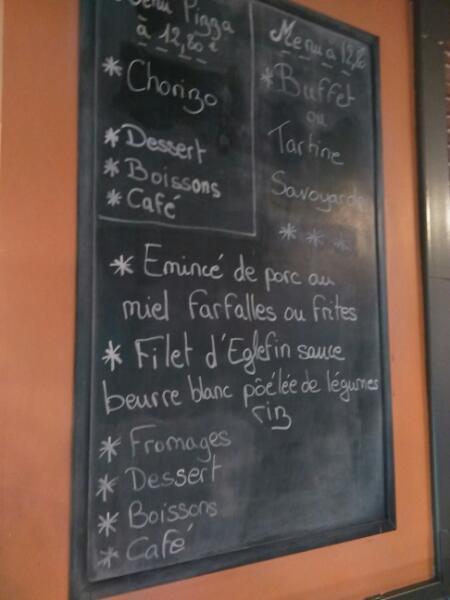 Menu Pizza
à 12,80 €
* Chorizo
* Dessert
* Boissons
* Café
Menu à 12,80
* Buffet
ou
Tartine
Savoyarde
* * *
* Emincé de porc au
miel farfalles ou frites
* Filet d'Eglefin sauce
beurre blanc pôélée de légumes
riz
* Fromages
* Dessert
* Boissons
* Café